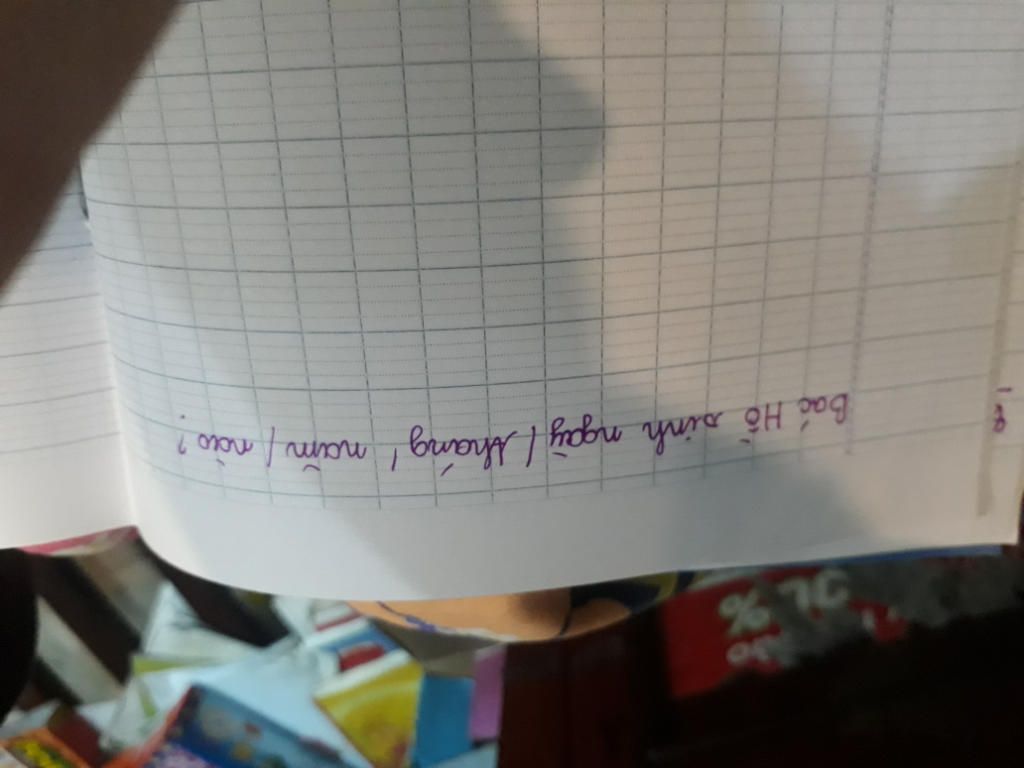 Bác Hồ sinh ngày / tháng / năm / nào ?